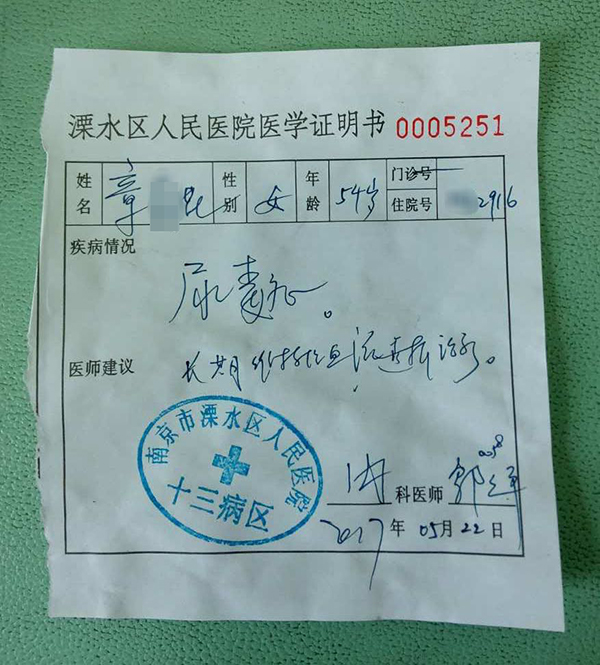 溧水区人民医院医学证明书 0005251
姓名 章 昆 性别 女 年龄 54岁 门诊号 住院号 2916
疾病情况
尿毒症。
医师建议 长期维持性血液透析治疗。
南京市溧水区人民医院
十三病区
内 科医师 郭
2017年05月22日